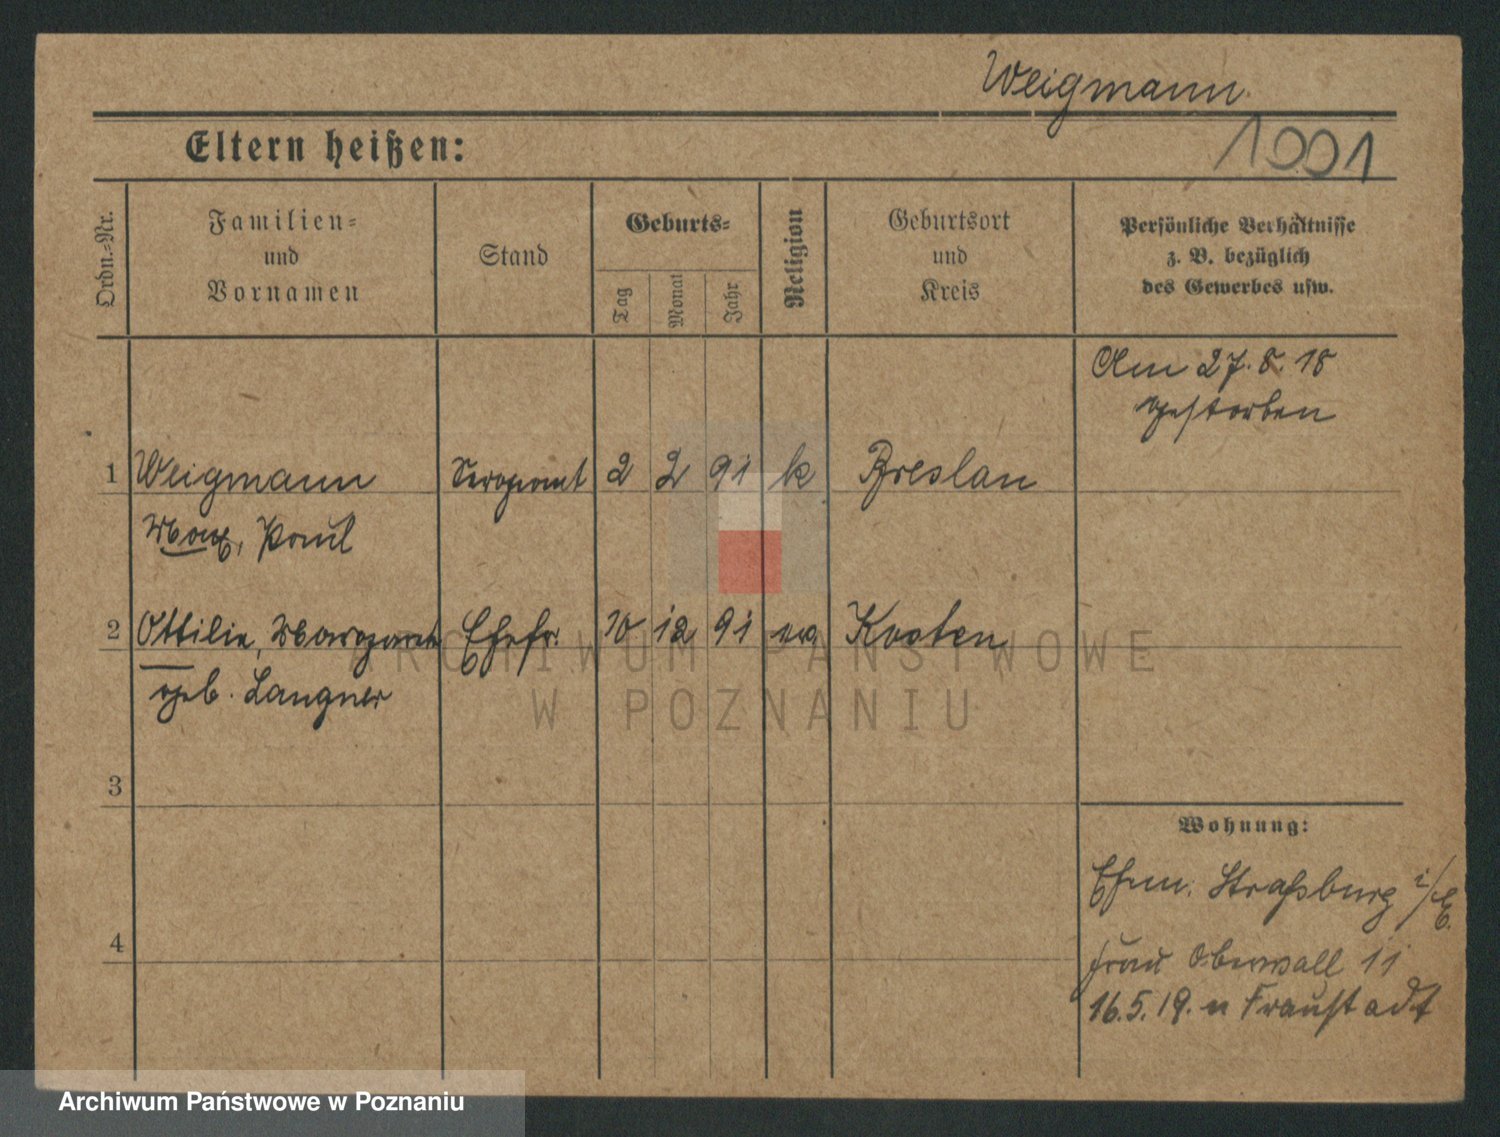 Weigmann
1001
Eltern heißen:
Ordn.-Nr.
Familien-
und
Vornamen
Stand
Geburts-
Tag
Monat
Jahr
Religion
Geburtsort
und
Kreis
Persönliche Verhältnisse
z. B. bezüglich
des Gewerbes usw.
Am 27. 8. 18
gestorben
1 Weigmann Sergeant 2 2 91 k Breslau
Max, Paul
2 Ottilie, Margarete Ehefr. 10 12 91 ev Kosten
geb. Langner
3
Wohnung:
Ehem. Straßburg i/E.
4
Frau Oberwall 11
16.5.19. n Fraustadt
ARCHIWUM PAŃSTWOWE
W POZNANIU
Archiwum Państwowe w Poznaniu